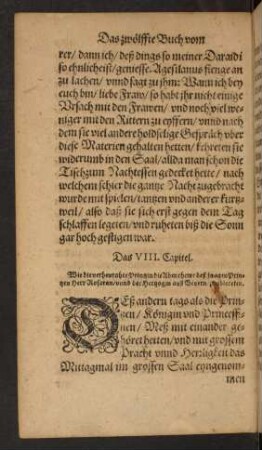 Das zwölffte Buch vom
rer/ dann ich/ deß dings so meiner Daraidi
so ehnlicheist/ geniesse. Agesilanus fienge an
zu lachen/ vnnd sagt zu jhm: Wann ich bey
euch bin/ liebe Fraw/ so habt jhr nicht einige
Vrsach mit den Frawen/ vnd noch viel we-
niger mit den Rittern zu eyffern/ vnnd nach
dem sie viel andere holdselige Gespräch vber
diese Materien gehalten hetten/ kehreten sie
widerumb in den Saal/ allda man schon die
Tisch zum Nachtessen gedecket hette/ nach
welchem schier die gantze Nacht zugebracht
wurde mit spielen/ tantzen vnd anderer kurtz-
weil/ also daß sie sich erst gegen dem Tag
schlaffen legeten/ vnd ruheten biß die Sonn
gar hoch gestigen war.
Das VIII. Capitel.
Wie die
DEß andern tags als die Prin-
tzen/ Königin vnd Princessi-
nen/ Meß mit einander ge-
höret hetten/ vnd mit grossem
Pracht vnnd Herrligkeit das
Mittagmal im grossen Saal eyngenom-
men